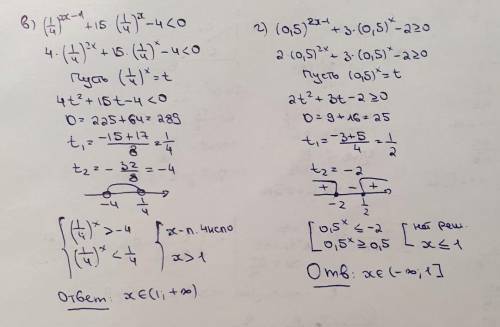 в) (1/4)^(2x-1) + 15·(1/4)^x - 4 < 0
4·(1/4)^(2x) + 15·(1/4)^x - 4 < 0
Пусть (1/4)^x = t
4t² + 15t - 4 < 0
D = 225 + 64 = 289
t₁ = (-15+17)/8 = 1/4
t₂ = -32/8 = -4
-4 1/4
{ (1/4)^x > -4 { x-л. число
{ (1/4)^x < 1/4 { x > 1
Ответ: x∈(1; +∞)
г) (0,5)^(2x-1) + 3·(0,5)^x - 2 ≥ 0
2·(0,5)^(2x) + 3·(0,5)^x - 2 ≥ 0
Пусть (0,5)^x = t
2t² + 3t - 2 ≥ 0
D = 9 + 16 = 25
t₁ = (-3+5)/4 = 1/2
t₂ = -2
+ - +
-2 1/2
[ 0,5^x ≤ -2 [ нет реш.
[ 0,5^x ≥ 0,5 [ x ≤ 1
Отв: x∈(-∞; 1]